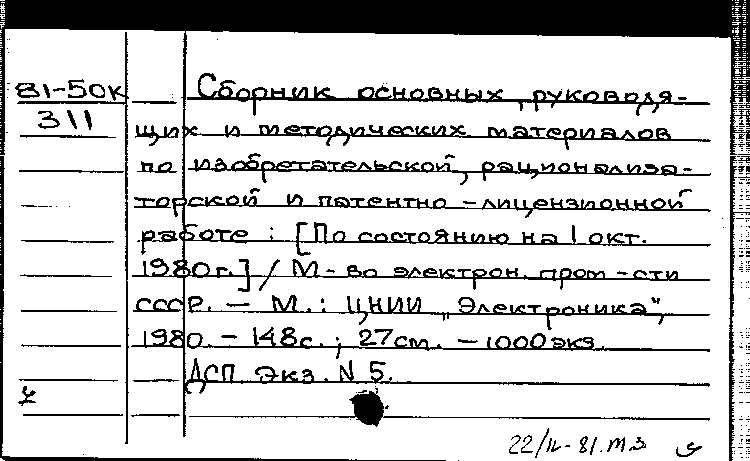 81-50к
311
Сборник основных, руководя-
щих и методических материалов
по изобретательской, рационализа-
торской и патентно-лицензионной
работе : [По состоянию на 1 окт.
1980г.] / М-во электрон. пром-сти
СССР. — М. : ЦНИИ „Электроника",
1980. — 148с. ; 27см. — 1000экз.
ДСП. Экз. N 5.